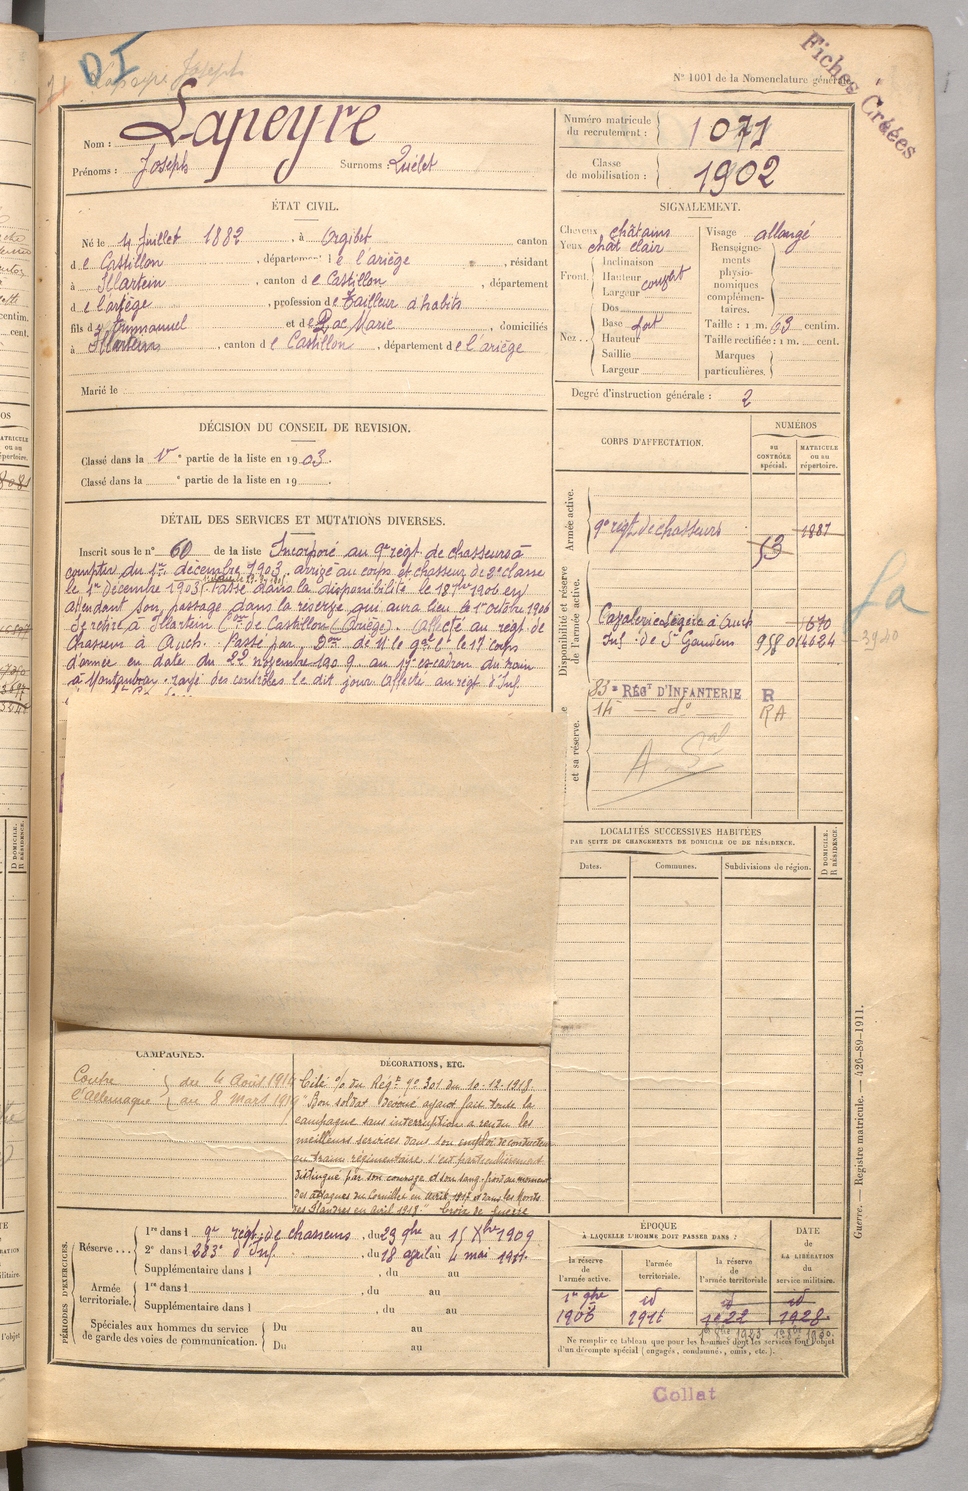 DI
Lapeyre Joseph
Fiches Créées
N° 1001 de la Nomenclature générale
Nom : Lapeyre
Prénoms : Joseph Surnoms : Quélet
Numéro matricule du recrutement : 1071
Classe de mobilisation : 1902
ÉTAT CIVIL.
Né le 4 Juillet 1882, à Orgibet canton
de Castillon, département de l'ariège, résidant
à Illartein, canton de Castillon, département
de l'ariège, profession de tailleur d'habits
fils d' Emmanuel et de Dac Marie, domiciliés
à Illartein, canton de Castillon, département de l'ariège
Marié le
SIGNALEMENT.
Cheveux châtains
Yeux chat clair
Front. Inclinaison
Hauteur
Largeur
Nez.. Dos
Base fort
Hauteur
Saillie
Largeur
Visage allongé
Renseignements physionomiques complémentaires.
Taille : 1 m. 63 centim.
Taille rectifiée : 1 m. cent.
Marques particulières.
Degré d'instruction générale : 2
DÉCISION DU CONSEIL DE REVISION.
Classé dans la 1re partie de la liste en 1903.
Classé dans la e partie de la liste en 19 .
DÉTAIL DES SERVICES ET MUTATIONS DIVERSES.
Inscrit sous le n° 60 de la liste Incorporé au 9e régt de chasseurs à
compter du 1er décembre 1903. arrivé au corps et chasseur de 2e classe
le 1er Décembre 1903. Passé dans la disponibilité le 18 1906 en
attendant son passage dans la réserve qui aura lieu le 1er octobre 1906
Se retire à Illartein Con de Castillon (Ariège). Affecté au régt de
Chasseurs à Auch. Passé par Don de M. le Gal Ct le 17e corps
d'armée en date du 22 novembre 1909 au 17e escadron du train
à Montauban. rayé des contrôles le dit jour. Affecté au régt d'Inf.
CORPS D'AFFECTATION.
NUMÉROS
au CONTRÔLE spécial.
MATRICULE ou au répertoire.
Armée active.
9e régt de chasseurs 53 1887
Disponibilité et réserve de l'armée active.
Cavalerie Légère à Auch 670
Inf. de St Gaudens 958 014024
et sa réserve.
83e RÉGT D'INFANTERIE R
14e — do — RA
LOCALITÉS SUCCESSIVES HABITÉES
PAR SUITE DE CHANGEMENTS DE DOMICILE OU DE RÉSIDENCE.
Dates. Communes. Subdivisions de région. D DOMICILE. R RÉSIDENCE.
CAMPAGNES.
Contre l'Allemagne du 4 Août 1914 au 8 mars 1919
DÉCORATIONS, ETC.
Cité % du Régt n° 301 du 10-12-1918.
"Bon soldat dévoué ayant fait toute la
campagne sans interruption a rendu les
meilleurs services dans son emploi de conducteur
au train régimentaire s'est particulièrement
distingué par son courage et son sang-froid au moment
des attaques du Cornillet en avril 1917 et dans les Monts
des Flandres en avril 1918" Croix de Guerre
PÉRIODES D'EXERCICES.
Réserve... 1re dans l 9e régt de chasseurs, du 23 9bre au 15 Xbre 1909
2e dans l 283e d'Inf., du 18 avril au 4 mai 1911.
Supplémentaire dans l , du au
Armée territoriale. 1re dans l , du au
Supplémentaire dans l , du au
Spéciales aux hommes du service de garde des voies de communication. Du au
Du au
ÉPOQUE
À LAQUELLE L'HOMME DOIT PASSER DANS :
la réserve de l'armée active. l'armée territoriale. la réserve de l'armée territoriale
DATE DE LA LIBÉRATION du service militaire.
1er 8bre 1906 id 1916 id 1922 id 1928
1er 8bre 1923
Ne remplir ce tableau que pour les hommes dont les services font l'objet
d'un décompte spécial (engagés, condamnés, omis, etc.).
Guerre. — Registre matricule. — 426-89-1911.
Collat